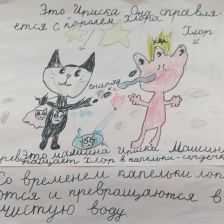 Это Ириска. Она справля-
ется с королём Хлора
Хлор
синиям
Это машина Ириски. Машина
превращает Хлор в капельки-сердечки
Со временем капельки лоп
аются и превращаются в
чистую воду